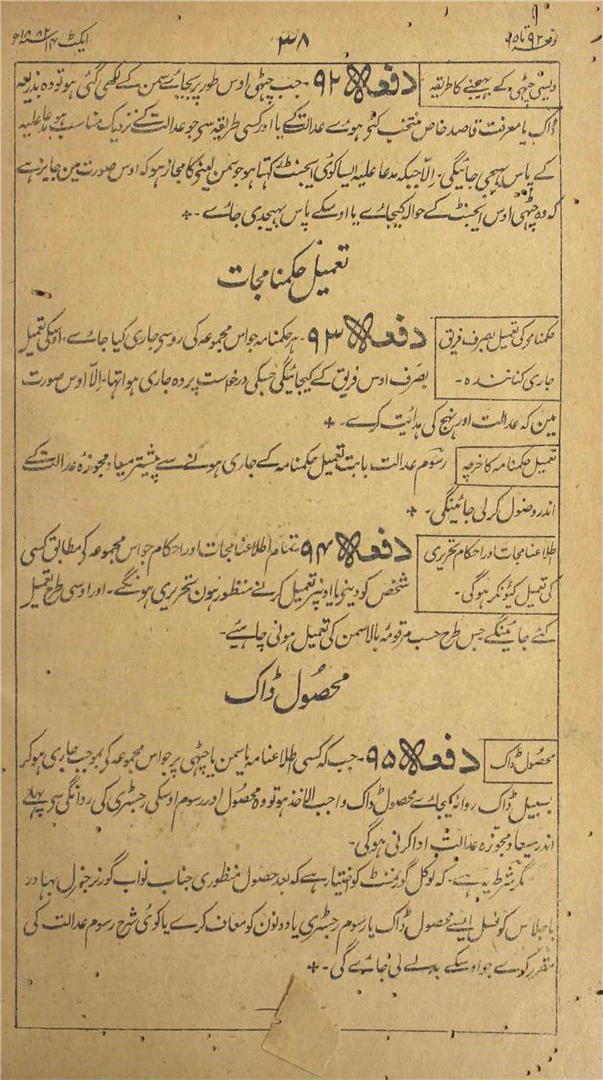 دفعہ ۹۲ تا ۹۵
۳۸
ایکٹ ۱۴ سنہ ۱۸۸۲ ء
ویسی چٹھی کے بھیجنے کا طریقہ
دفعہ ۹۲ - جب چٹھی اوس طور پر بجائے سمن کے لکھی گئی ہو تو وہ بذریعہ
ڈاک یا معرفت قاصد خاص منتخب کئے ہوئے عدالت کے یا اور کسی طریقہ سے جو عدالت کے نزدیک مناسب ہو مدعا علیہ
کے پاس بھیجی جائیگی - اِلّا جبکہ مدعا علیہ ایسا کوئی ایجنٹ رکھتا ہو جو سمن لینے کا مجاز ہو کہ اوس صورت مین جایز ہے
کہ وہ چٹھی اوس ایجنٹ کے حوالہ کیجائے یا اوسکے پاس بھیجدی جائے - +
تعمیل حکمنامجات
حکمنامہ کی تعمیل بصرف فریق
جاری کنانندہ -
دفعہ ۹۳ - ہر حکمنامہ جو اس مجموعہ کی رو سے جاری کیا جائے - اوسکی تعمیل
بصرف اوس فریق کے کیجائیگی جسکی درخواست پر وہ جاری ہوا تھا - اِلّا اوس صورت
مین کہ عدالت اور نہج کی ہدایت کرے - +
تعمیل حکمنامہ کا خرچہ
رسوم عدالت بابت تعمیل حکمنامہ کے جاری ہونے سے پیشتر میعاد مجوزہ عدالت کے
اندر وصول کر لی جائینگی - +
اطلاعنامجات اور احکام تحریری
کی تعمیل کیونکر ہوگی -
دفعہ ۹۴ - تمام اطلاعنامجات اور احکام جو اس مجموعہ کی مطابق کسی
شخص کو دینے یا اوسپر تعمیل کرنے منظور ہون تحریری ہونگے - اور اوسی طرح تعمیل
کئے جائینگے جس طرح حسب مرقومہ بالا سمن کی تعمیل ہونی چاہئے -
محصول ڈاک
محصول ڈاک
دفعہ ۹۵ - جب کہ کسی اطلاعنامہ یا سمن یا چٹھی پر جو اس مجموعہ کی بموجب جاری ہو کر
بسبیل ڈاک روانہ کیجائے محصول ڈاک واجب الاخذ ہو تو وہ محصول اور رسوم اوسکی رجسٹری کی روانگی سے پہلے
اندر میعاد مجوزہ عدالت ادا کرنی ہوگی -
مگر شرط یہ ہے - کہ لوکل گورنمنٹ کو اختیار ہے کہ بعد حصول منظوری جناب نواب گورنر جنرل بہادر
باجلاس کونسل ایسے محصول ڈاک یا رسوم رجسٹری یا دونون کو معاف کرے یا کوئی شرح رسوم عدالت کی
مقرر کردے جو اوسکے بدلے لی جائے گی - +